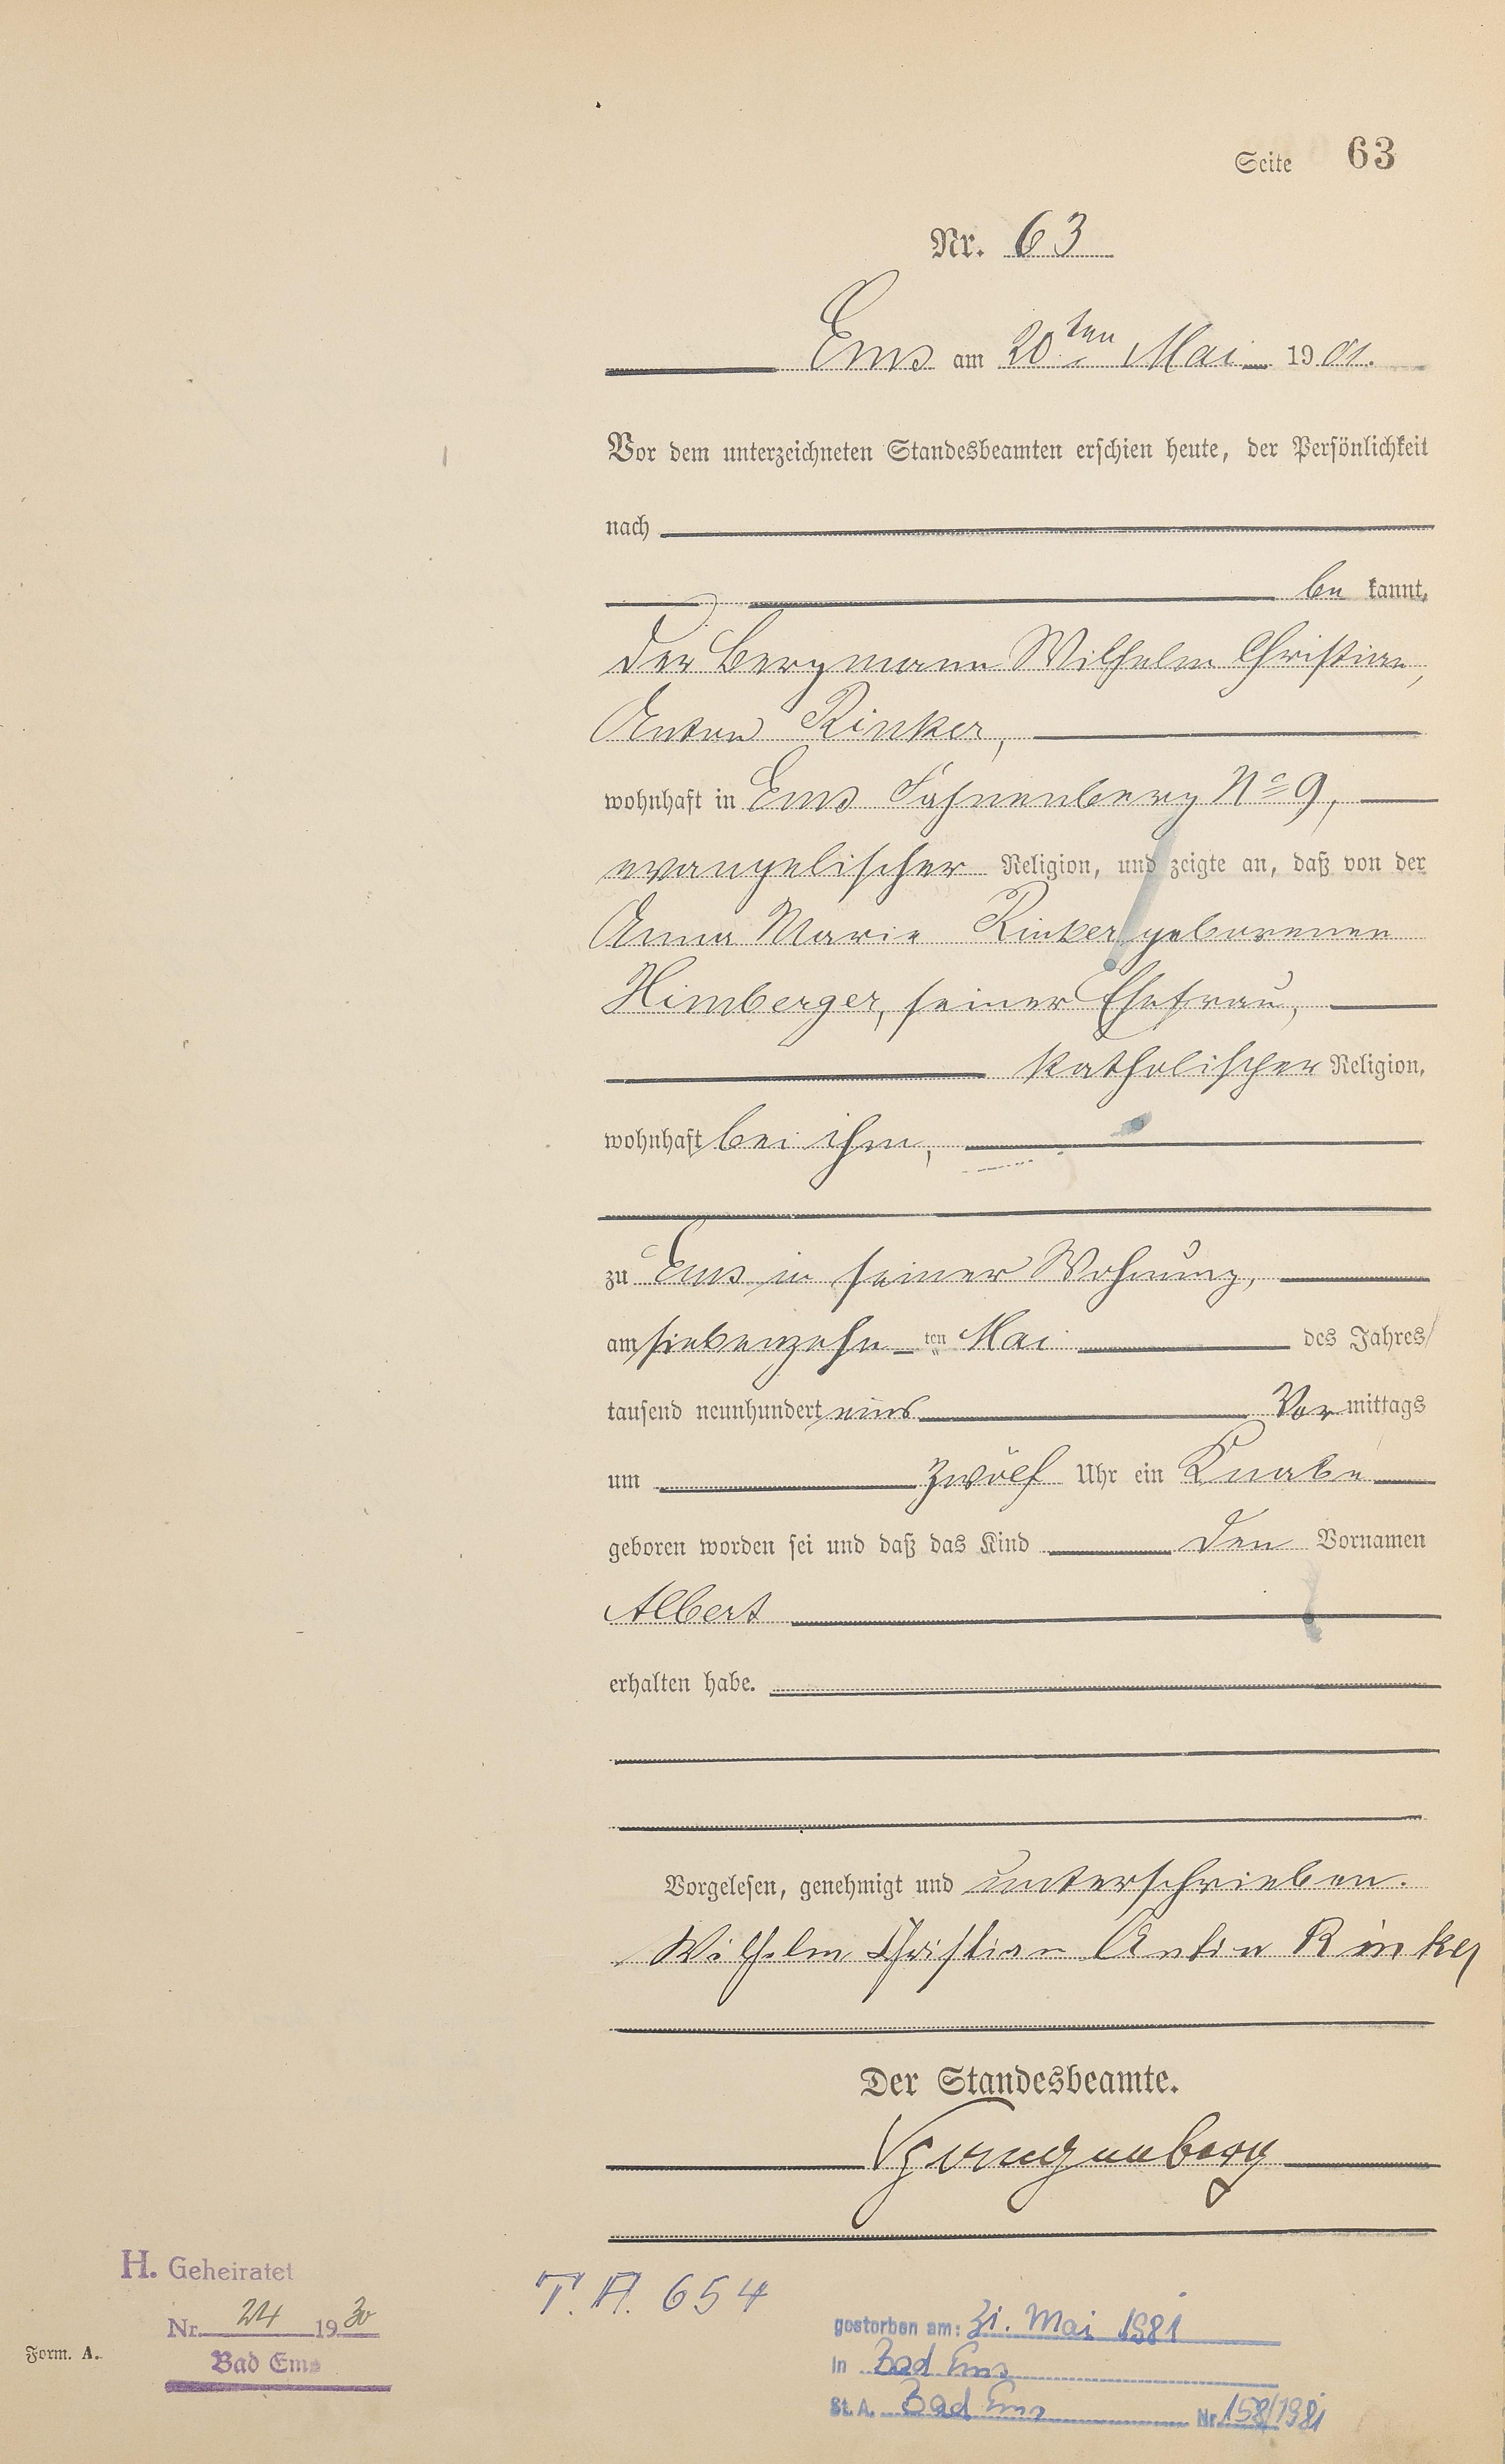 Seite 63
Nr. 63
Ems am 20ten Mai 1901.
Vor dem unterzeichneten Standesbeamten erschien heute, der Persönlichkeit
nach
bekannt,
der Bergmann Wilhelm Christian,
Anton Rinker,
wohnhaft in Ems Fahnenberg No 9,
evangelischer Religion, und zeigte an, daß von der
Anna Marie Rinker geborenen
Himberger, seiner Ehefrau,
katholischer Religion,
wohnhaft bei ihm,
zu Ems in seiner Wohnung,
am siebenzehnten Mai des Jahres
tausend neunhundert eins Vormittags
um zwölf Uhr ein Knabe
geboren worden sei und daß das Kind den Vornamen
Albert
erhalten habe.
Vorgelesen, genehmigt und unterschrieben.
Wilhelm Christian Anton Rinker
Der Standesbeamte.
H. Geheiratet
Nr. 24 1930
Bad Ems
Form. A.
T. A. 654
gestorben am: 31. Mai 1981
in Bad Ems
St. A. Bad Ems Nr. 158/1981